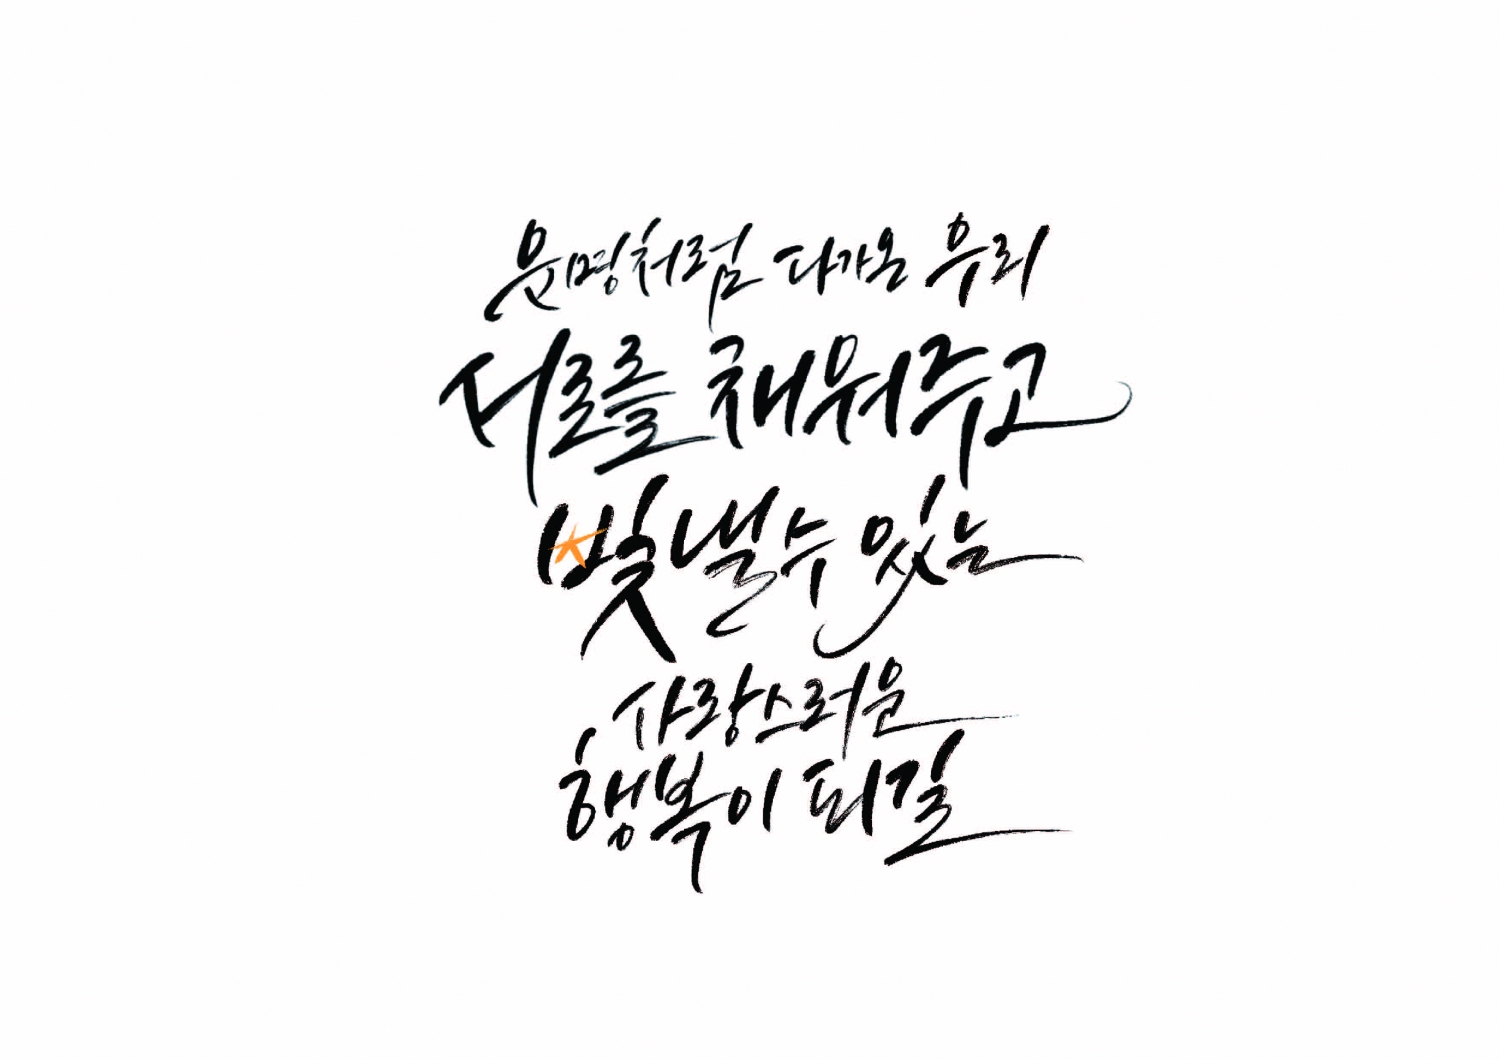 운명처럼 다가온 우리
서로를 채워주고
빛낼 수 있는
사랑스러운
행복이 피길